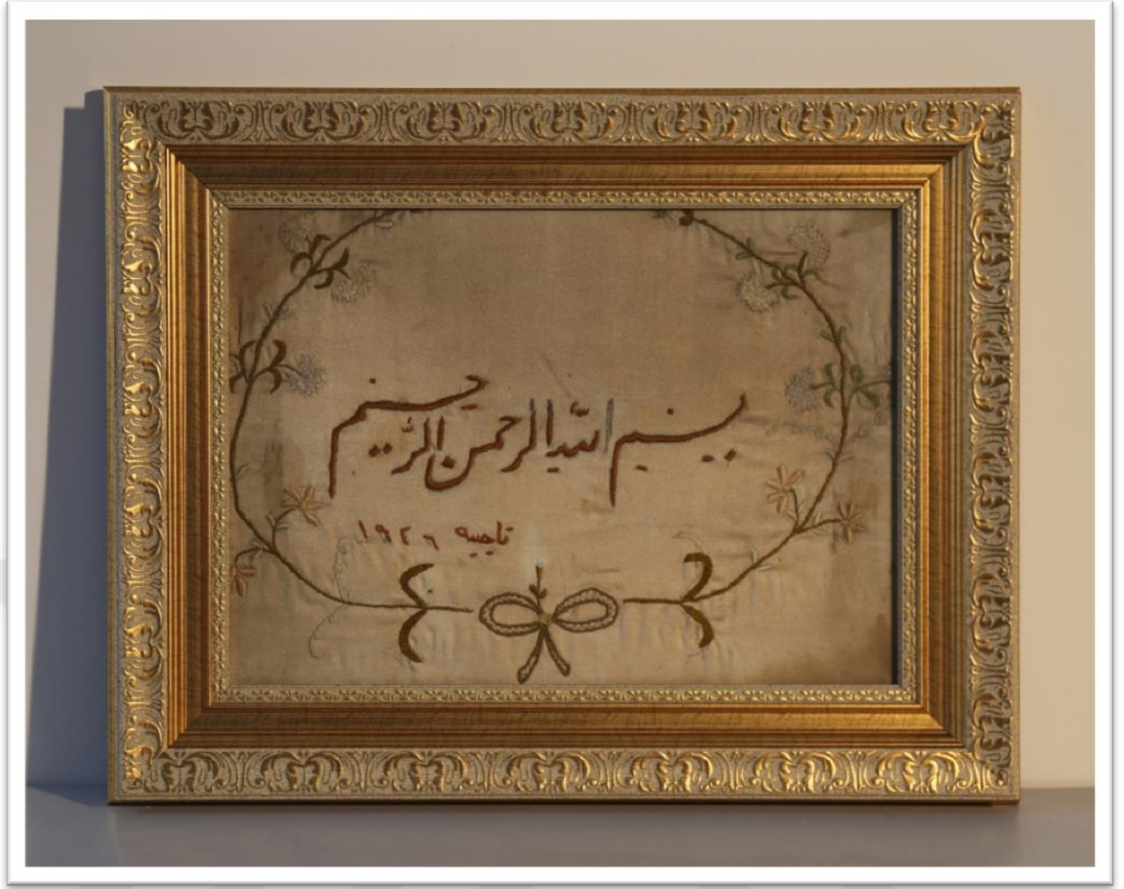 بسم الله الرحمن الرحيم
ناجيه ١٩٢٦